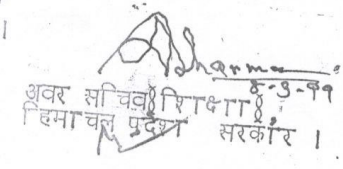 Sharma
8-3-99
अवर सचिव (शिक्षा)
हिमाचल प्रदेश सरकार ।